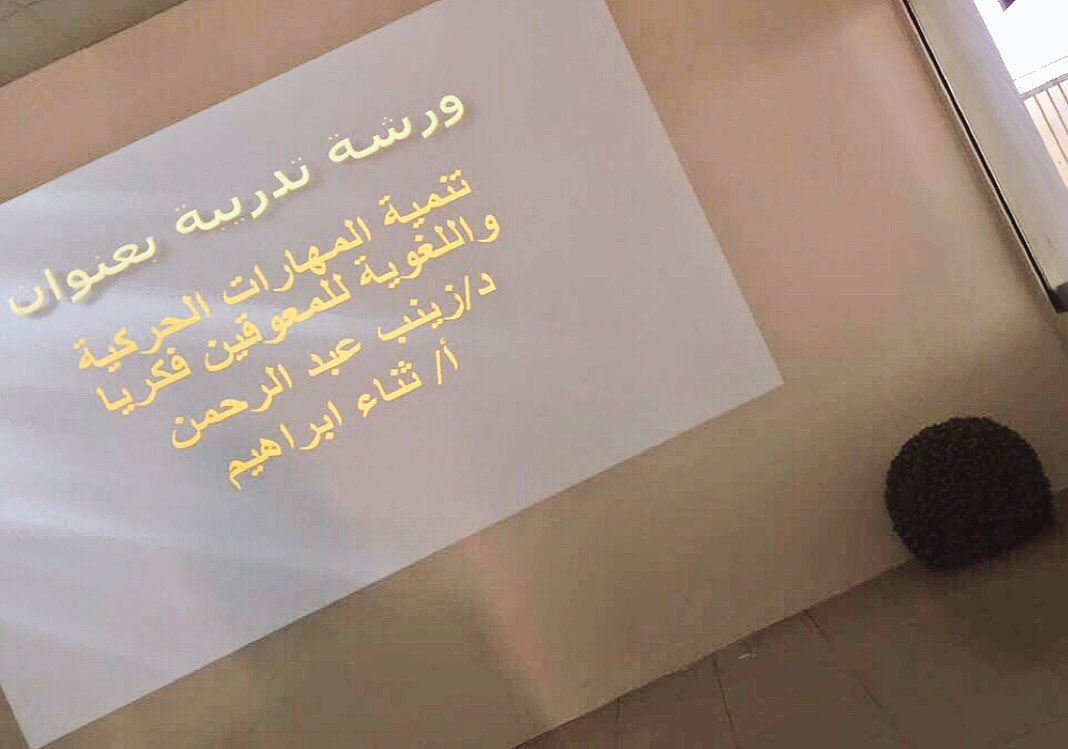 ورشة تدريبة بعنوان
تنمية المهارات الحركية
واللغوية للمعوقين فكريا
د/زينب عبد الرحمن
أ/ ثناء ابراهيم